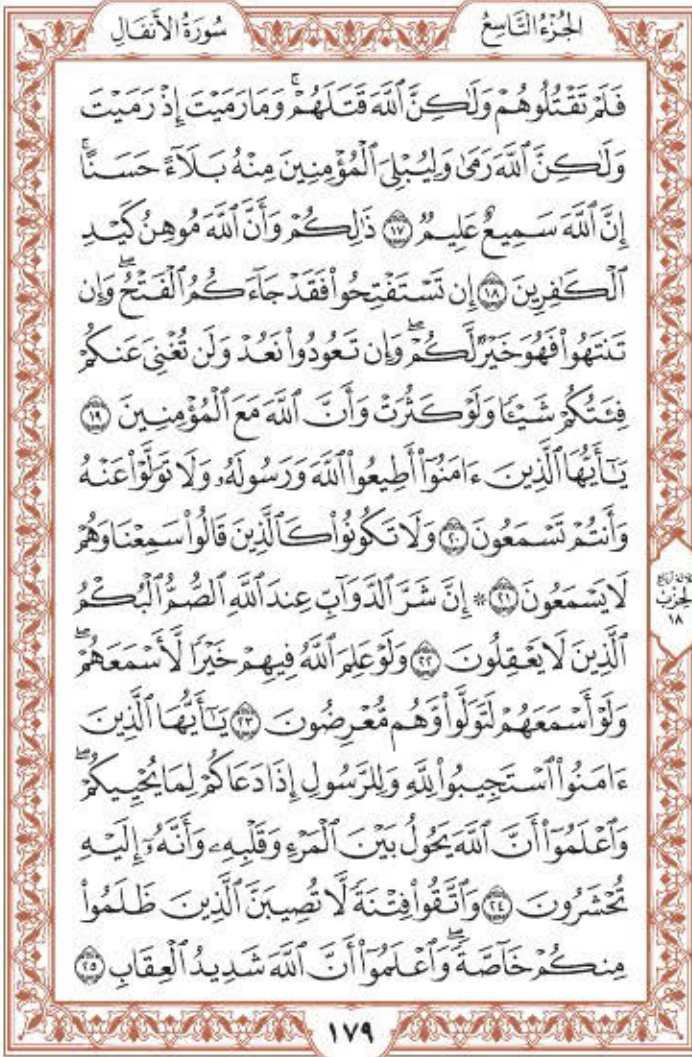 سُورَةُ الأَنفَالِ
الجُزْءُ التَّاسِعُ
فَلَمْ تَقْتُلُوهُمْ وَلَٰكِنَّ ٱللَّهَ قَتَلَهُمْ ۚ وَمَا رَمَيْتَ إِذْ رَمَيْتَ
وَلَٰكِنَّ ٱللَّهَ رَمَىٰ وَلِيُبْلِىَ ٱلْمُؤْمِنِينَ مِنْهُ بَلَآءً حَسَنًا ۚ
إِنَّ ٱللَّهَ سَمِيعٌ عَلِيمٌ ١٧ ذَٰلِكُمْ وَأَنَّ ٱللَّهَ مُوهِنُ كَيْدِ
ٱلْكَٰفِرِينَ ١٨ إِن تَسْتَفْتِحُوا۟ فَقَدْ جَآءَكُمُ ٱلْفَتْحُ ۖ وَإِن
تَنتَهُوا۟ فَهُوَ خَيْرٌ لَّكُمْ ۖ وَإِن تَعُودُوا۟ نَعُدْ وَلَن تُغْنِىَ عَنكُمْ
فِئَتُكُمْ شَيْـًٔا وَلَوْ كَثُرَتْ وَأَنَّ ٱللَّهَ مَعَ ٱلْمُؤْمِنِينَ ١٩
يَٰٓأَيُّهَا ٱلَّذِينَ ءَامَنُوٓا۟ أَطِيعُوا۟ ٱللَّهَ وَرَسُولَهُۥ وَلَا تَوَلَّوْا۟ عَنْهُ
وَأَنتُمْ تَسْمَعُونَ ٢٠ وَلَا تَكُونُوا۟ كَٱلَّذِينَ قَالُوا۟ سَمِعْنَا وَهُمْ
لَا يَسْمَعُونَ ٢١ ۞ إِنَّ شَرَّ ٱلدَّوَآبِّ عِندَ ٱللَّهِ ٱلصُّمُّ ٱلْبُكْمُ
ٱلَّذِينَ لَا يَعْقِلُونَ ٢٢ وَلَوْ عَلِمَ ٱللَّهُ فِيهِمْ خَيْرًا لَّأَسْمَعَهُمْ ۖ
وَلَوْ أَسْمَعَهُمْ لَتَوَلَّوا۟ وَّهُم مُّعْرِضُونَ ٢٣ يَٰٓأَيُّهَا ٱلَّذِينَ
ءَامَنُوا۟ ٱسْتَجِيبُوا۟ لِلَّهِ وَلِلرَّسُولِ إِذَا دَعَاكُمْ لِمَا يُحْيِيكُمْ ۖ
وَٱعْلَمُوٓا۟ أَنَّ ٱللَّهَ يَحُولُ بَيْنَ ٱلْمَرْءِ وَقَلْبِهِۦ وَأَنَّهُۥٓ إِلَيْهِ
تُحْشَرُونَ ٢٤ وَٱتَّقُوا۟ فِتْنَةً لَّا تُصِيبَنَّ ٱلَّذِينَ ظَلَمُوا۟
مِنكُمْ خَآصَّةً ۖ وَٱعْلَمُوٓا۟ أَنَّ ٱللَّهَ شَدِيدُ ٱلْعِقَابِ ٢٥
الحِزْبُ
١٨
١٧٩